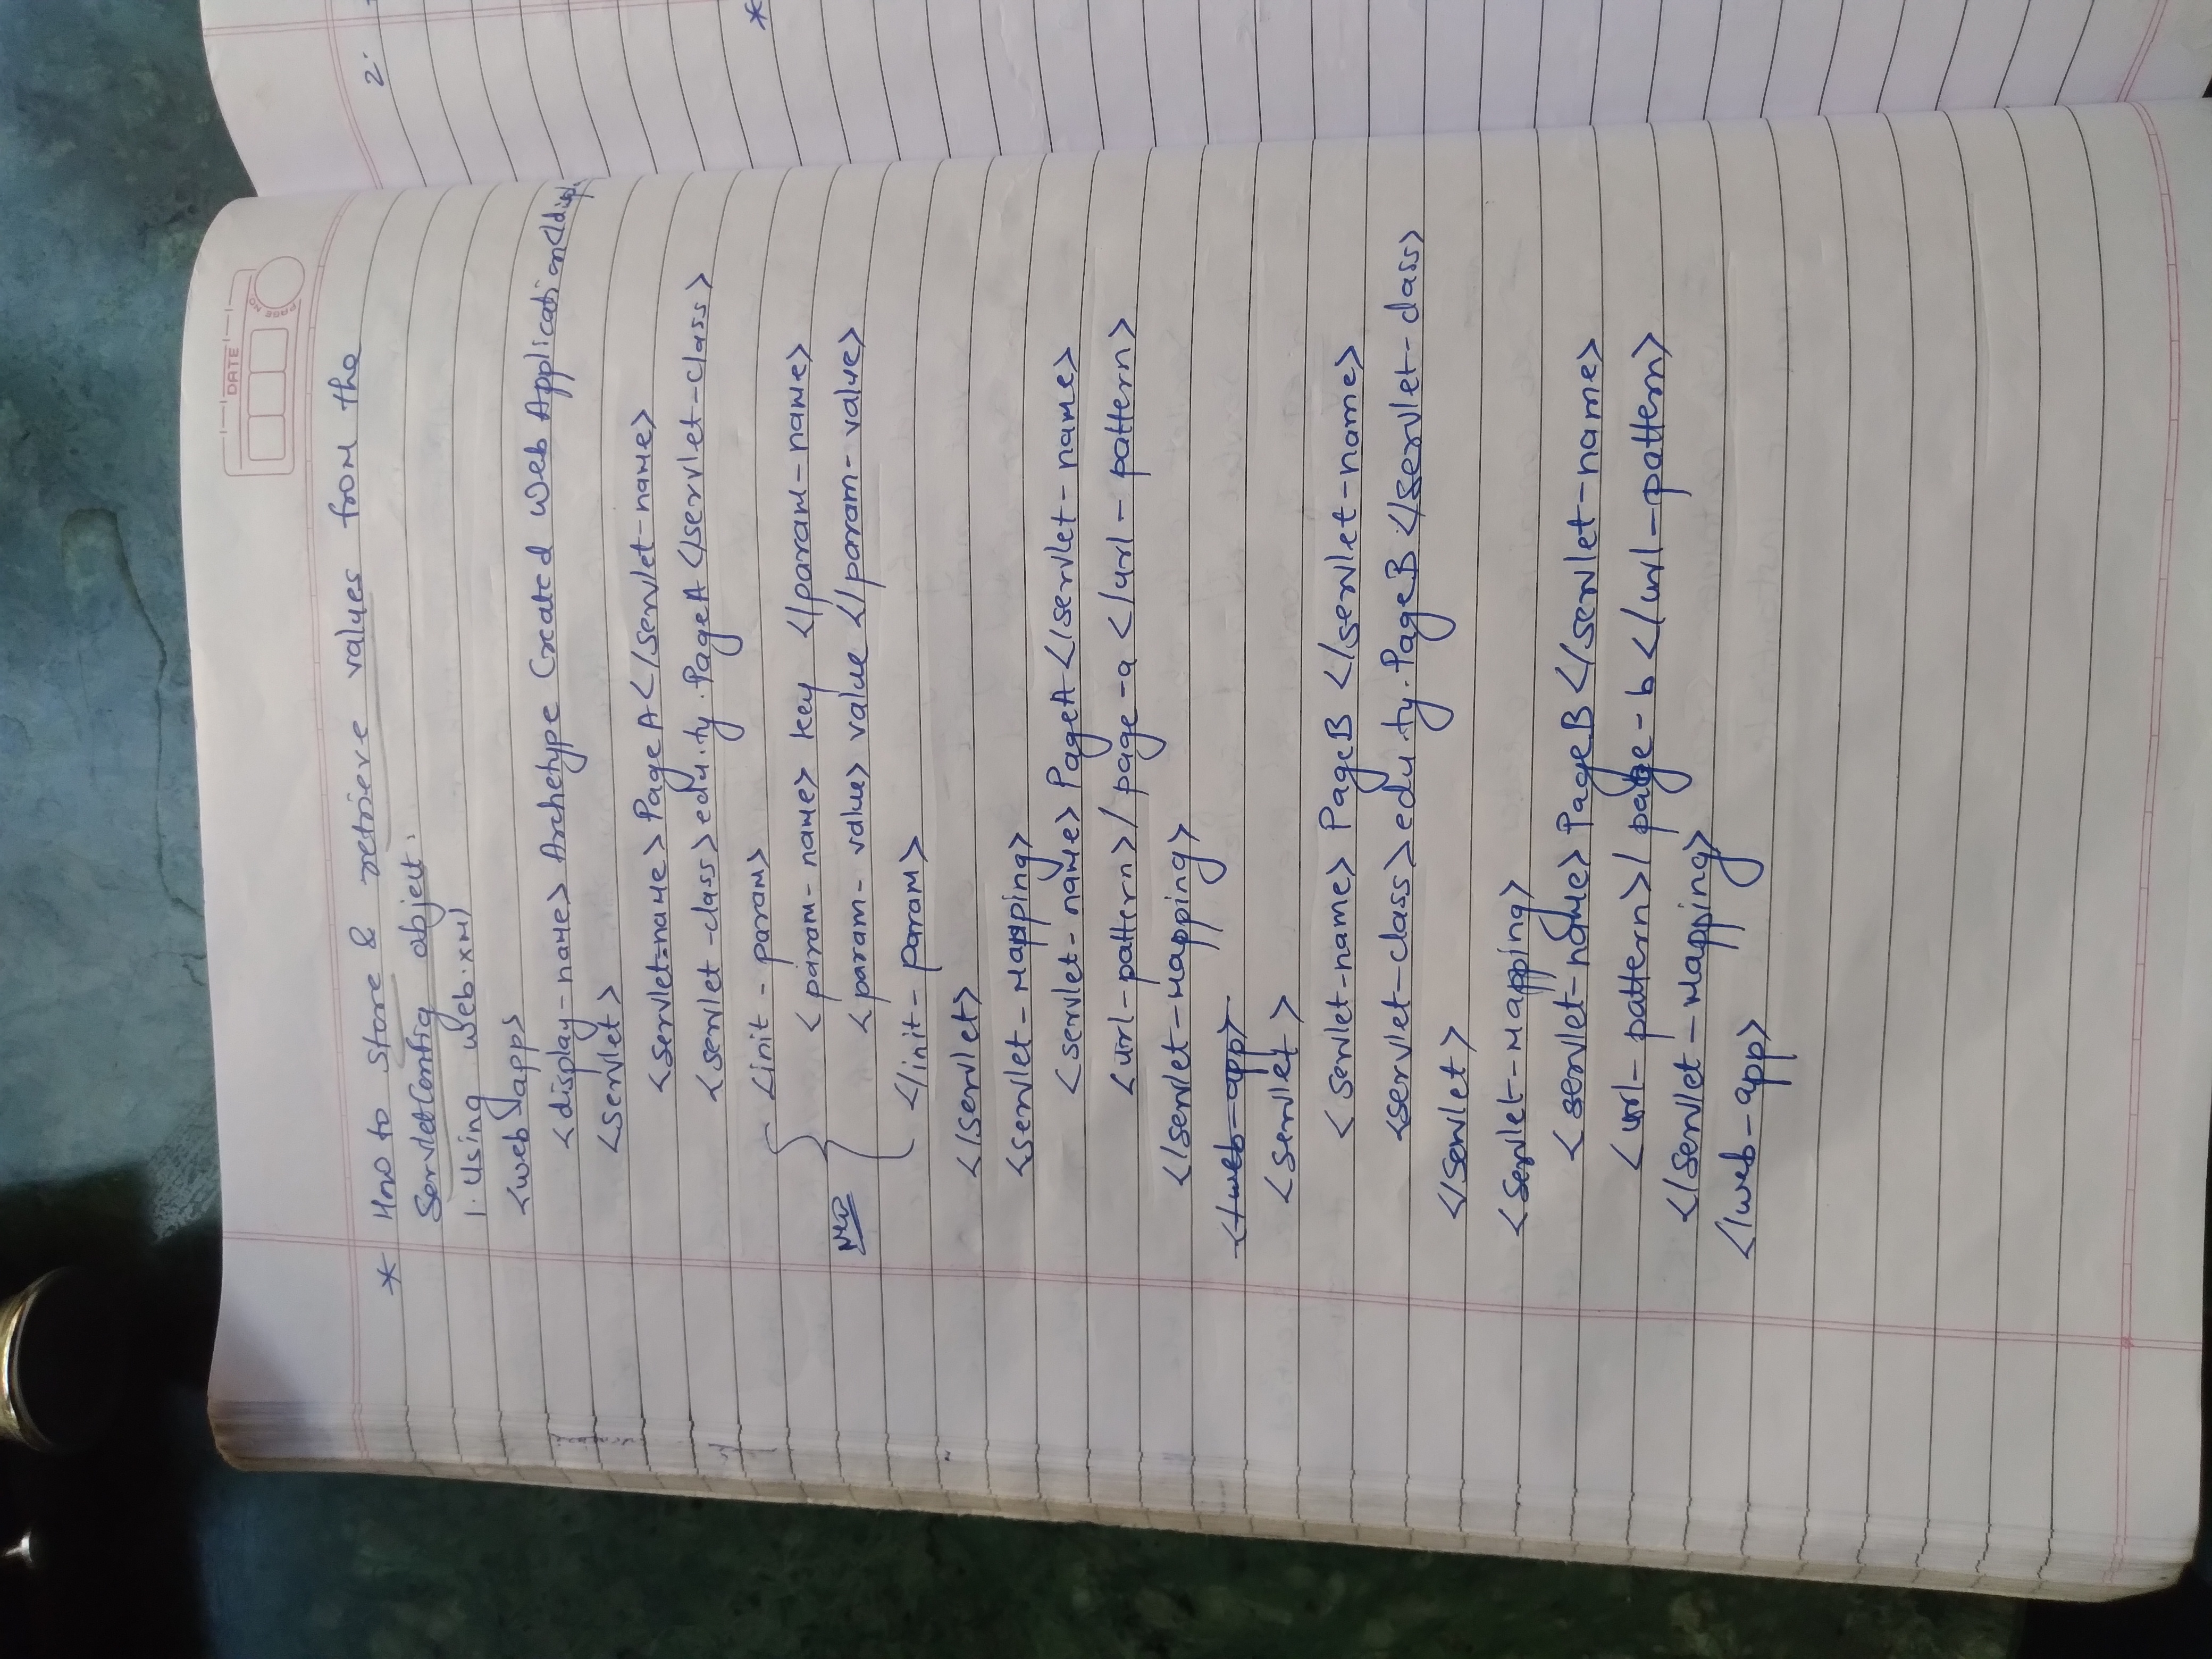 DATE
PAGE NO.
* How to store & retrieve values from the
ServletConfig object.
1. Using web.xml
<web-app>
<display-name> Archetype Created Web Application</disp
<servlet>
<servlet-name> PageA </servlet-name>
<servlet-class> edu.ty.PageA </servlet-class>
<init-param>
<param-name> key </param-name>
New
<param-value> value </param-value>
</init-param>
</servlet>
<servlet-mapping>
<servlet-name> PageA </servlet-name>
<url-pattern>/page-a </url-pattern>
</servlet-mapping>
</web-app>
<servlet>
<servlet-name> PageB </servlet-name>
<servlet-class> edu.ty.PageB </servlet-class>
</servlet>
<servlet-mapping>
<servlet-name> PageB </servlet-name>
<url-pattern>/page-b </url-pattern>
</servlet-mapping>
</web-app>
2.
*